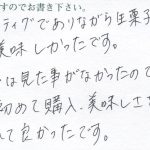 すのでお書き下さい。
ティグでありながら生栗子
美味しかったです。
は見た事がなかったので
初めて購入、美味しさを
て良かったです。